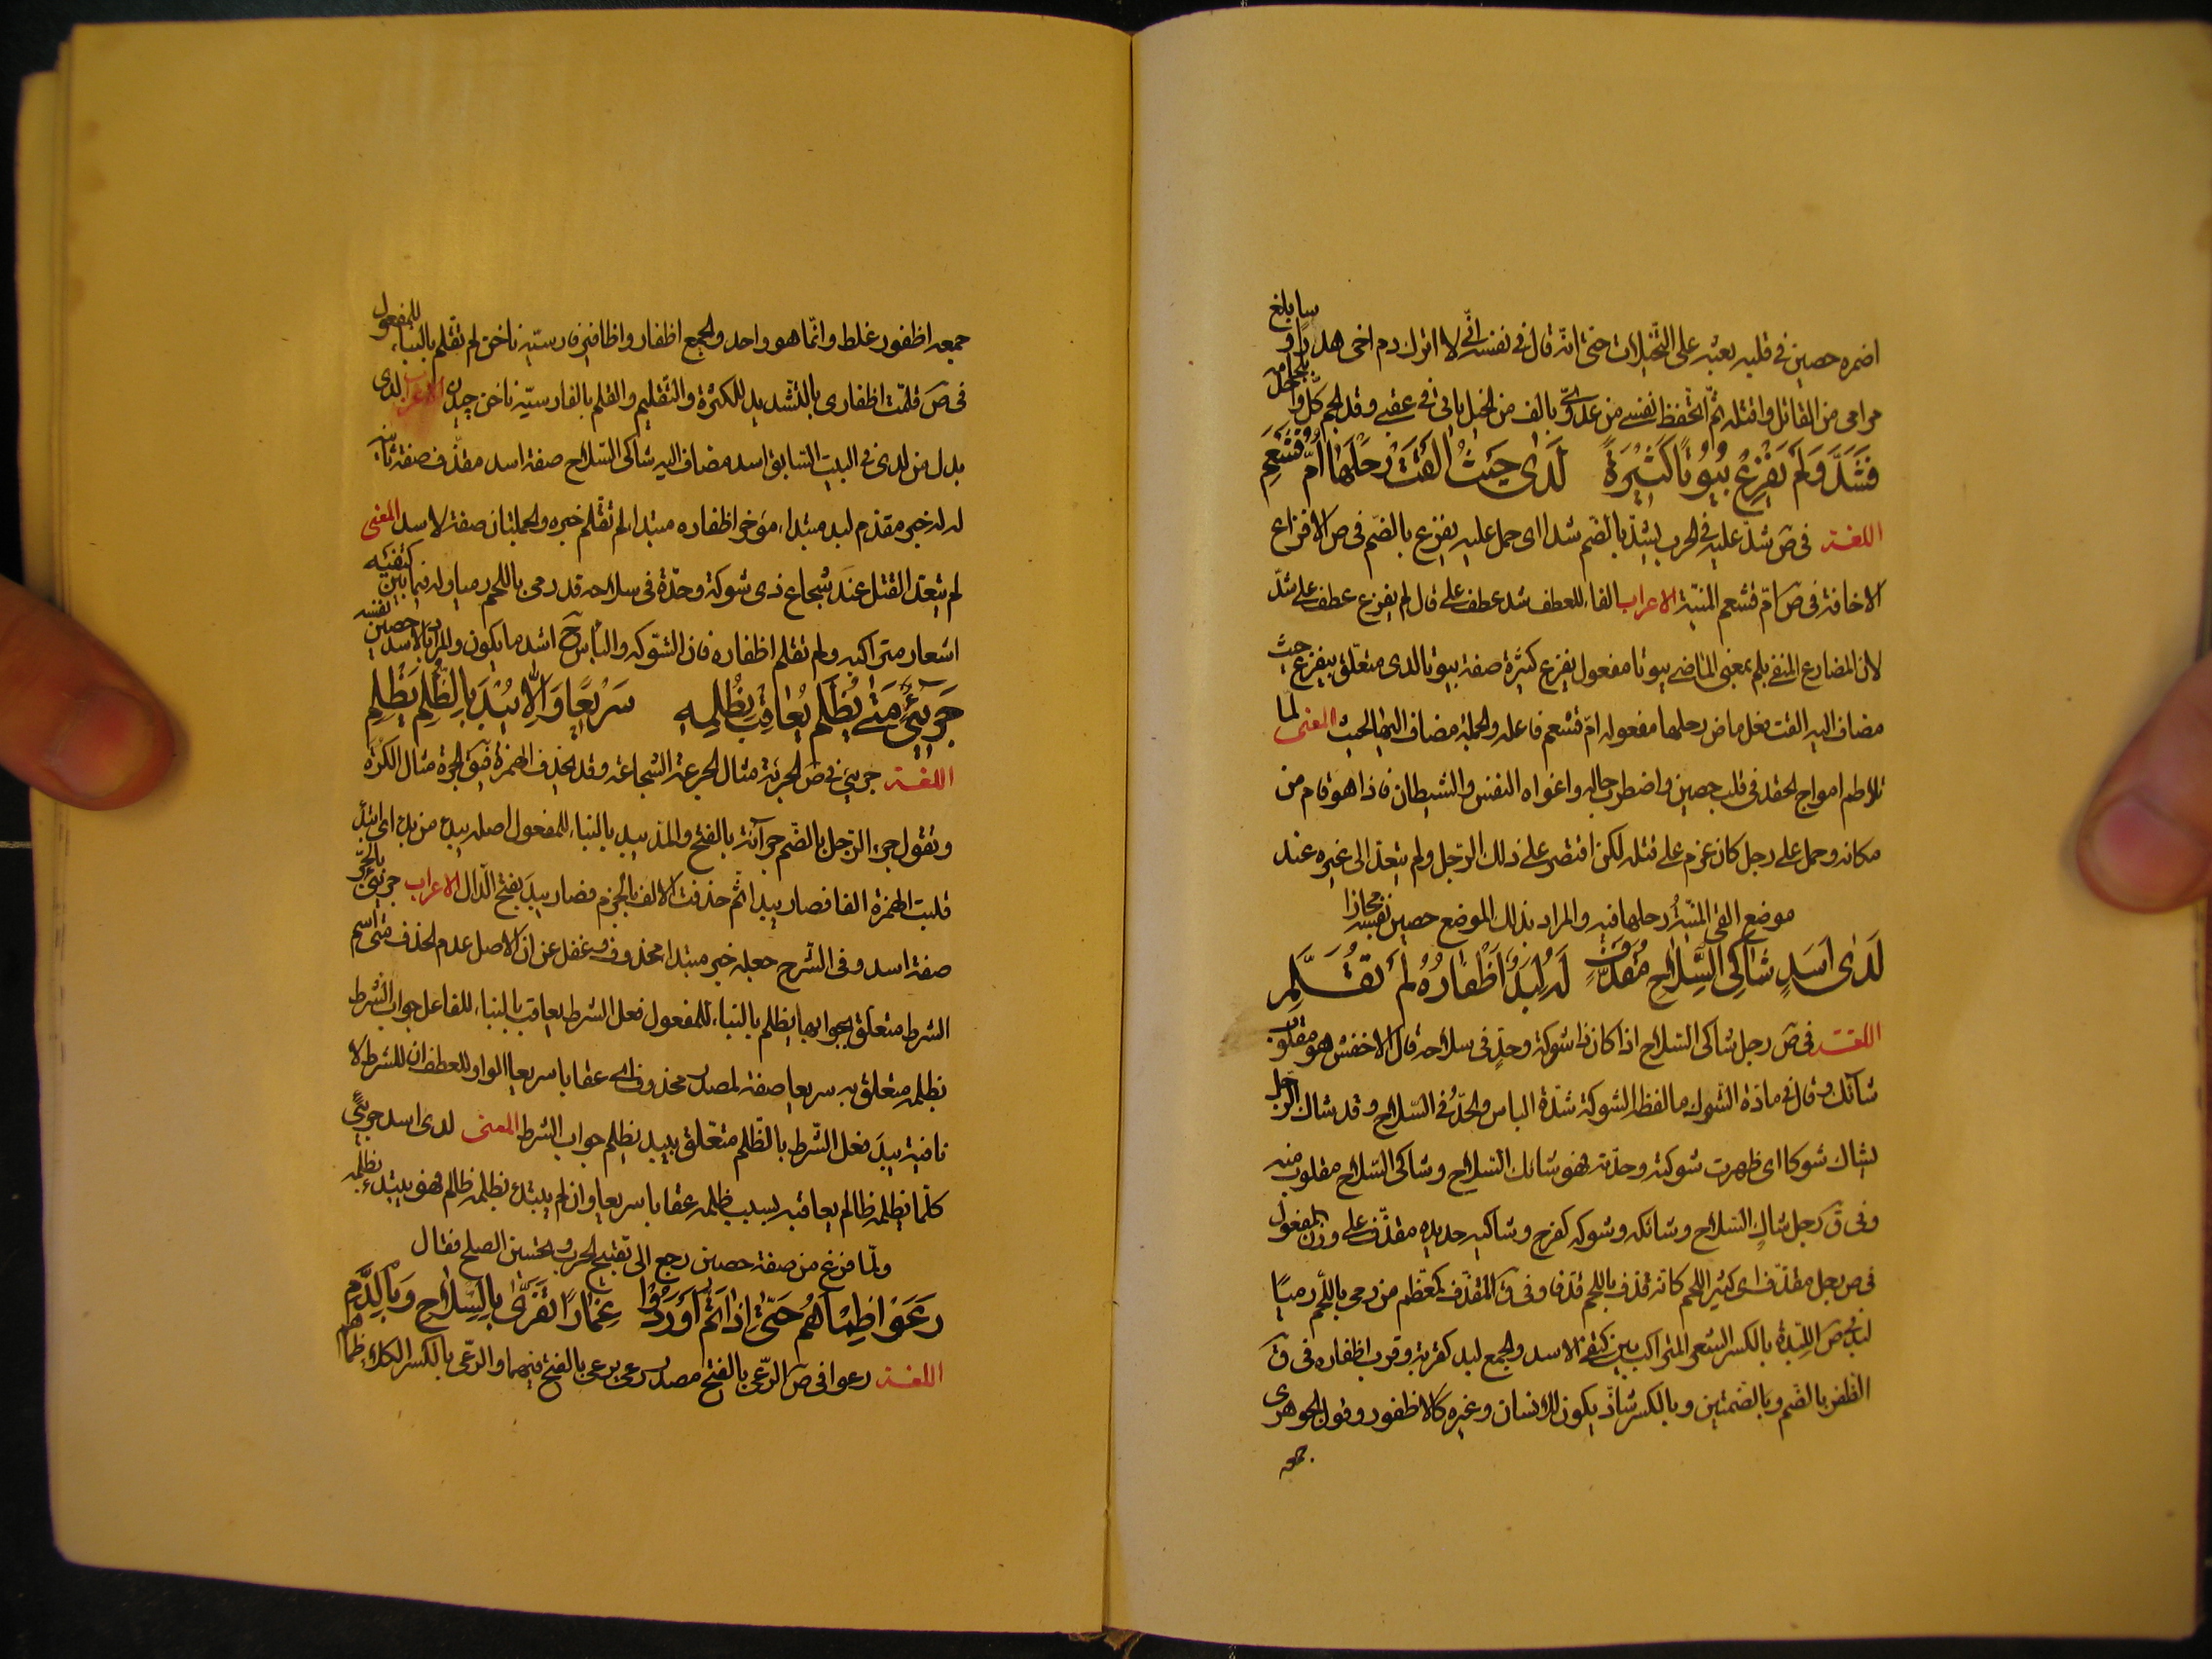 اضمره حصين في قلبه بعثه على التخيلات حتى انه قال في نفسه اني لا اترك دم اخي هدرا و سابلغ
مرامي من القاتل واقتله ثم اتحفظ نفسي من عدوي بالف من الخيل ياتي في عقبي وقد الجم كل واحد
فَشَدَّ وَلَم يُفزِع بُيُوتًا كَثِيرَةً لَدَى حَيثُ اَلقَت رَحلَهَا اُمُّ قَشعَمِ
اللغة في ص شد عليه في الحرب يشد بالضم شدا اى حمل عليه يفزع بالضم في ص الافزاع
الاخافة في ص ام قشعم المنية الاعراب الفاء للعطف شد عطف على قال لم يفزع عطف على شد
لان المضارع المنفي بلم بمعنى الماضي بيوتا مفعول يفزع كثيرة صفة بيوتا لدى متعلق بيفزع حيث
مضاف اليه القت فعل ماض رحلها مفعوله ام قشعم فاعله والجملة مضاف اليها لحيث المعنى لما
تلاطم امواج الحقد في قلب حصين واضطرب حاله واغواه النفس والشيطان فاذا هو قام من
مكانه وحمل على رجل كان عزم على قتله لكن اقتصر على ذلك الرجل ولم يتعد الى غيره عند
موضع القى المنية رحلها فيه والمراد بذلك الموضع حصين نفسه مجازا
لَدَى اَسَدٍ شَاكِى السِّلَاحِ مُقَذَّفٍ لَهُ لِبَدٌ اَظفَارُهُ لَم تُقَلَّمِ
اللغة في ص رجل شاكى السلاح اذا كان ذا شوكة وحد في سلاحه قال الاخفش هو مقلوب
شائك وقال في مادة الشوك ما لفظه الشوكة شدة الباس والحد في السلاح وقد شاك الرجل
يشاك شوكا اى ظهرت شوكته وحدته فهو شائك السلاح وشاكى السلاح مقلوب منه
وفي ق رجل شاك السلاح وشائكه وشوكه كفرح وشاكيه حديده مقذف على وزن المفعول
في ص رجل مقذف اى كثير اللحم كانه قذف باللحم قذفا وفي ق المقذف كمعظم من رمى باللحم رميا
لبد في ص اللبدة بالكسر الشعر المتراكب بين كتفي الاسد والجمع لبد كقربة وقرب اظفاره في ق
الظفر بالضم وبالضمتين وبالكسر شاذ يكون للانسان وغيره كالاظفور وقول الجوهرى
جمعه
جمعه اظفور غلط وانما هو واحد والجمع اظفار واظافير فارسيته ناخن لم تقلم بالبناء للمفعول
في ص قلمت اظفارى بالتشديد للكثرة والتقليم والقلم بالفارسية ناخن چيدن الاعراب لدى
بدل من لدى في البيت السابق اسد مضاف اليه شاكى السلاح صفة اسد مقذف صفة ثانية
له له خبر مقدم لبد مبتداء مؤخر اظفاره مبتدا لم تقلم خبره والجملتان صفة لاسد المعنى
لم يتعد القتل عند شجاع ذى شوكة وحدة في سلاحه قد رمى باللحم رميا وله فيما بين كتفيه
اشعار متراكبه ولم تقلم اظفاره فان الشوكه والباس ح اشد ما يكون والمراد بالاسد حصين نفسه
جَرِيءٍ مَتَى يُظلَم يُعَاقِب بِظُلمِهِ سَرِيعًا وَاِلَّا يُبدَ بِالظُّلمِ يَظلِمِ
اللغة جريء في ص الجرئة مثال الجرعة الشجاعة وقد يحذف الهمزة فيق الجرة مثال الكرة
وتقول جرء الرجل بالضم جرآئة بالفتح والمد يبد بالبناء للمفعول اصله يبدء من بدء اى ابتدأ
قلبت الهمزة الفا فصار يبدا ثم حذفت الالف بالجزم فصار يبد بفتح الدال الاعراب جريء بالجر
صفة اسد وفي الشرح جعله خبر مبتداء محذوف وغفل عن ان الاصل عدم الحذف متى اسم
الشرط متعلق بجوابها يظلم بالبناء للمفعول فعل الشرط يعاقب بالبناء للفاعل جواب الشرط
بظلمه متعلق به سريعا صفة لمصدر محذوف اى عقابا سريعا الواو للعطف ان للشرط لا
نافية يبد فعل الشرط بالظلم متعلق بيبد يظلم جواب الشرط المعنى لدى اسد جريء
كلما يظلمه ظالم يعاقبه بسبب ظلمه عقابا سريعا وان لم يبتدء بظلمه ظالم فهو يبتدء بظلمه
ولما فرغ من صفة حصين رجع الى تقبيح الحرب وتحسين الصلح فقال
رَعَوا ظِمأَهُم حَتَّى اِذَا تَمَّ اَورَدُوا غِمَارًا تَفَرَّى بِالسِّلَاحِ وَبِالدَّمِ
اللغة رعوا في ص الرعى بالفتح مصدر رعى يرعى بالفتح فيهما والرعى بالكسر الكلاء ظماهم